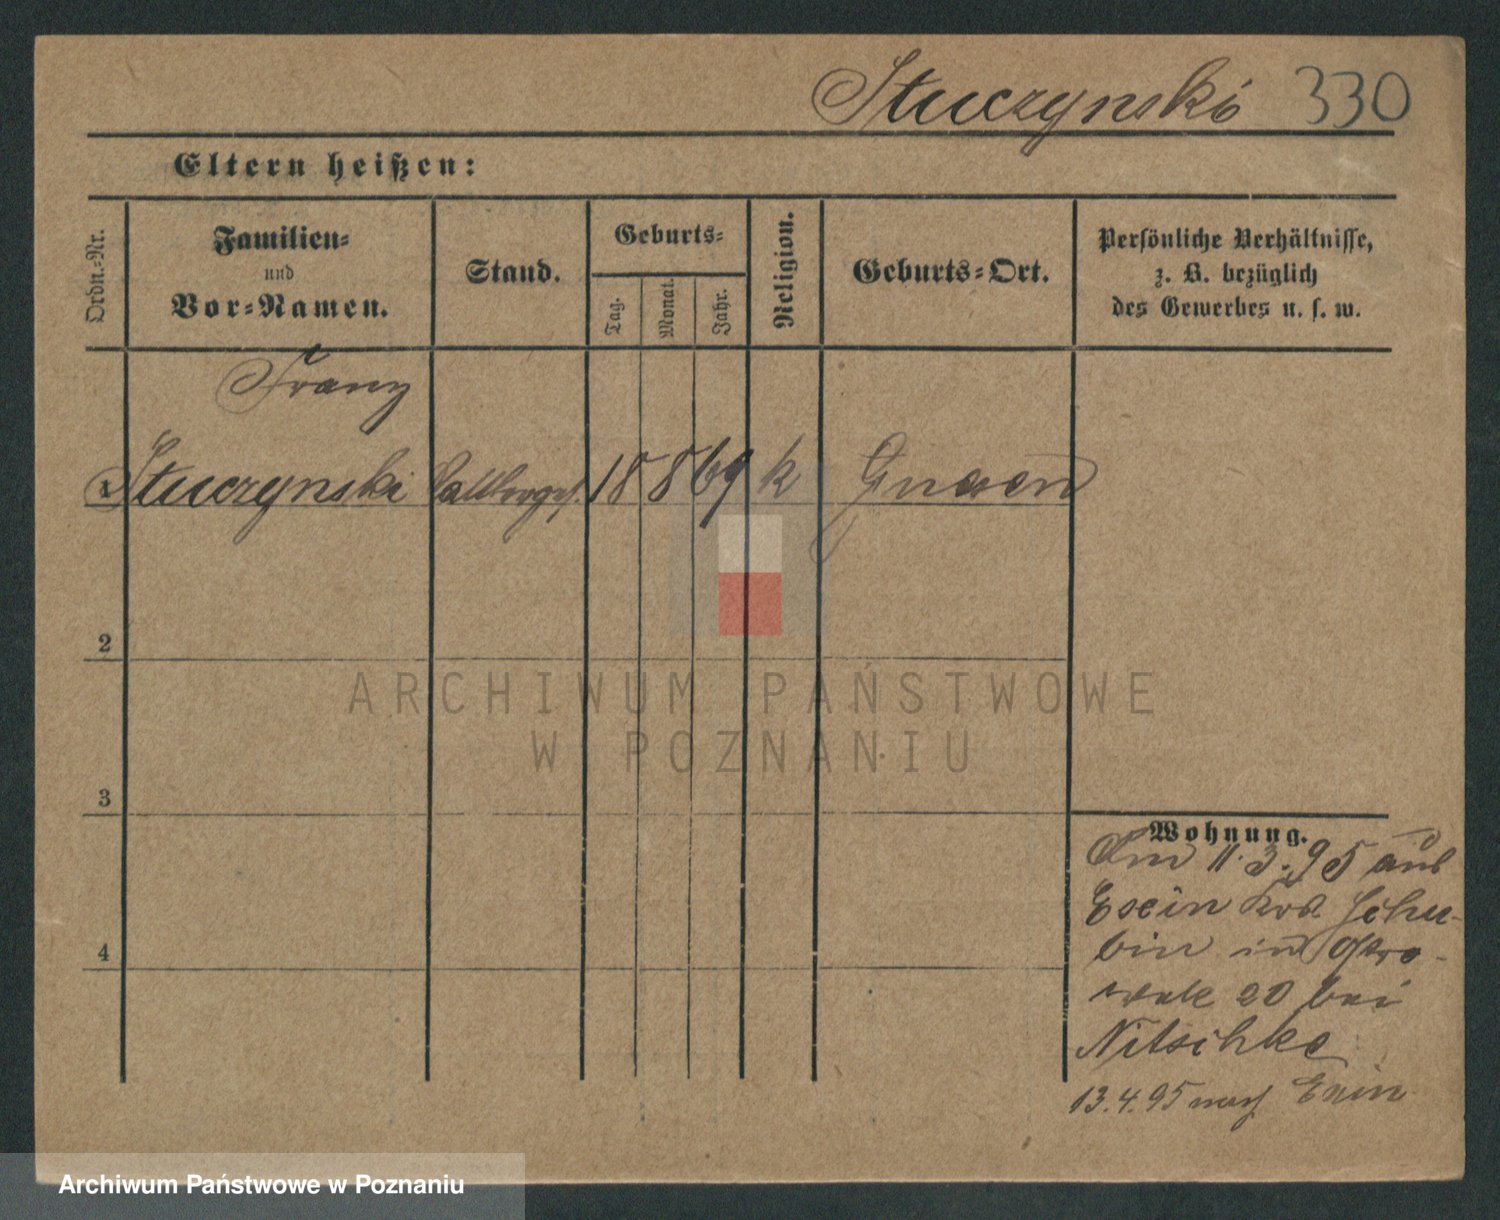 Stuczynski 330
Eltern heißen:
Ordn.-Nr.
Familien-
und
Vor-Namen.
Stand.
Geburts-
Tag.
Monat.
Jahr.
Religion.
Geburts-Ort.
Persönliche Verhältnisse,
z. B. bezüglich
des Gewerbes u. s. w.
Franz
1 Stuczynski 18 8 69 k Gnesen
2
3
4
ARCHIWUM PAŃSTWOWE
W POZNANIU
Wohnung.
Am 11.3.95 aus
Exin Krs Schu-
bin in Ostro-
wek 20 bei
Nitschke
13.4.95 nach Exin
Archiwum Państwowe w Poznaniu